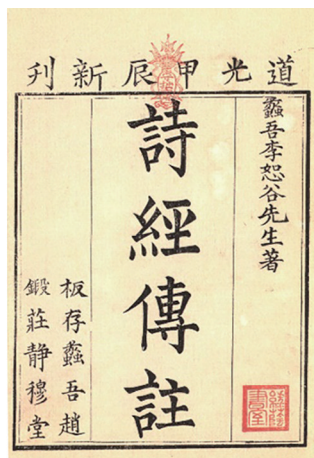 道光甲辰新刋
蠡吾李恕谷先生著
詩經傳註
板存蠡吾趙
鍛莊靜穆堂